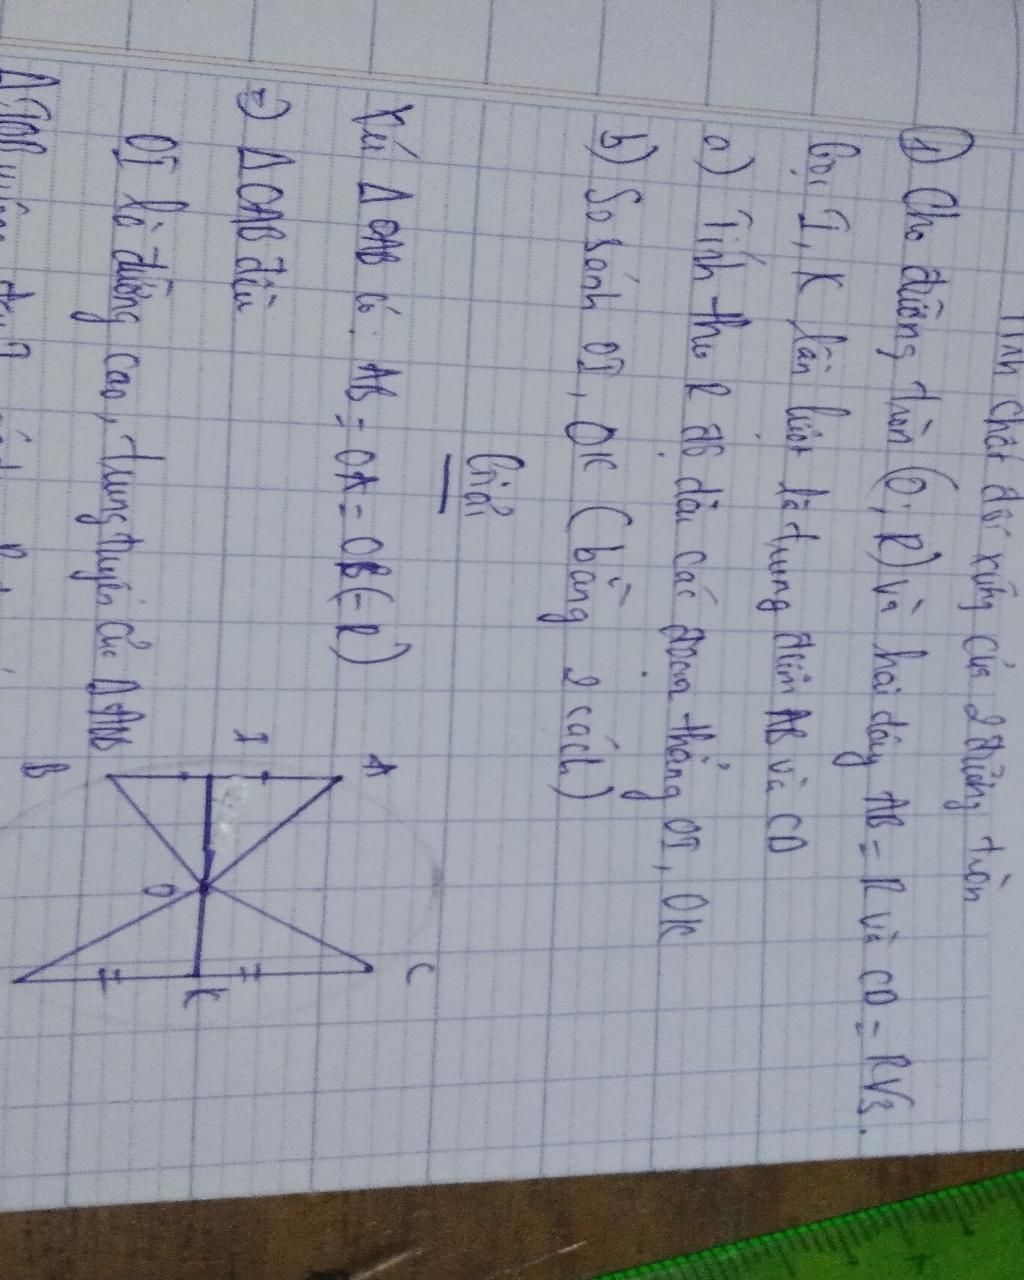 Tính chất đối xứng của 2 đường tròn
① Cho đường tròn (O; R) và hai dây AB = R và CD = R√3.
Gọi I, K lần lượt là trung điểm AB và CD
a) Tính theo R độ dài các đoạn thẳng OI, OK
b) So sánh OI, OK (bằng 2 cách)
Giải
Xét Δ OAB có: AB = OA = OB (= R)
=> Δ OAB đều
OI là đường cao, trung tuyến của Δ
A
I
B
O
C
K